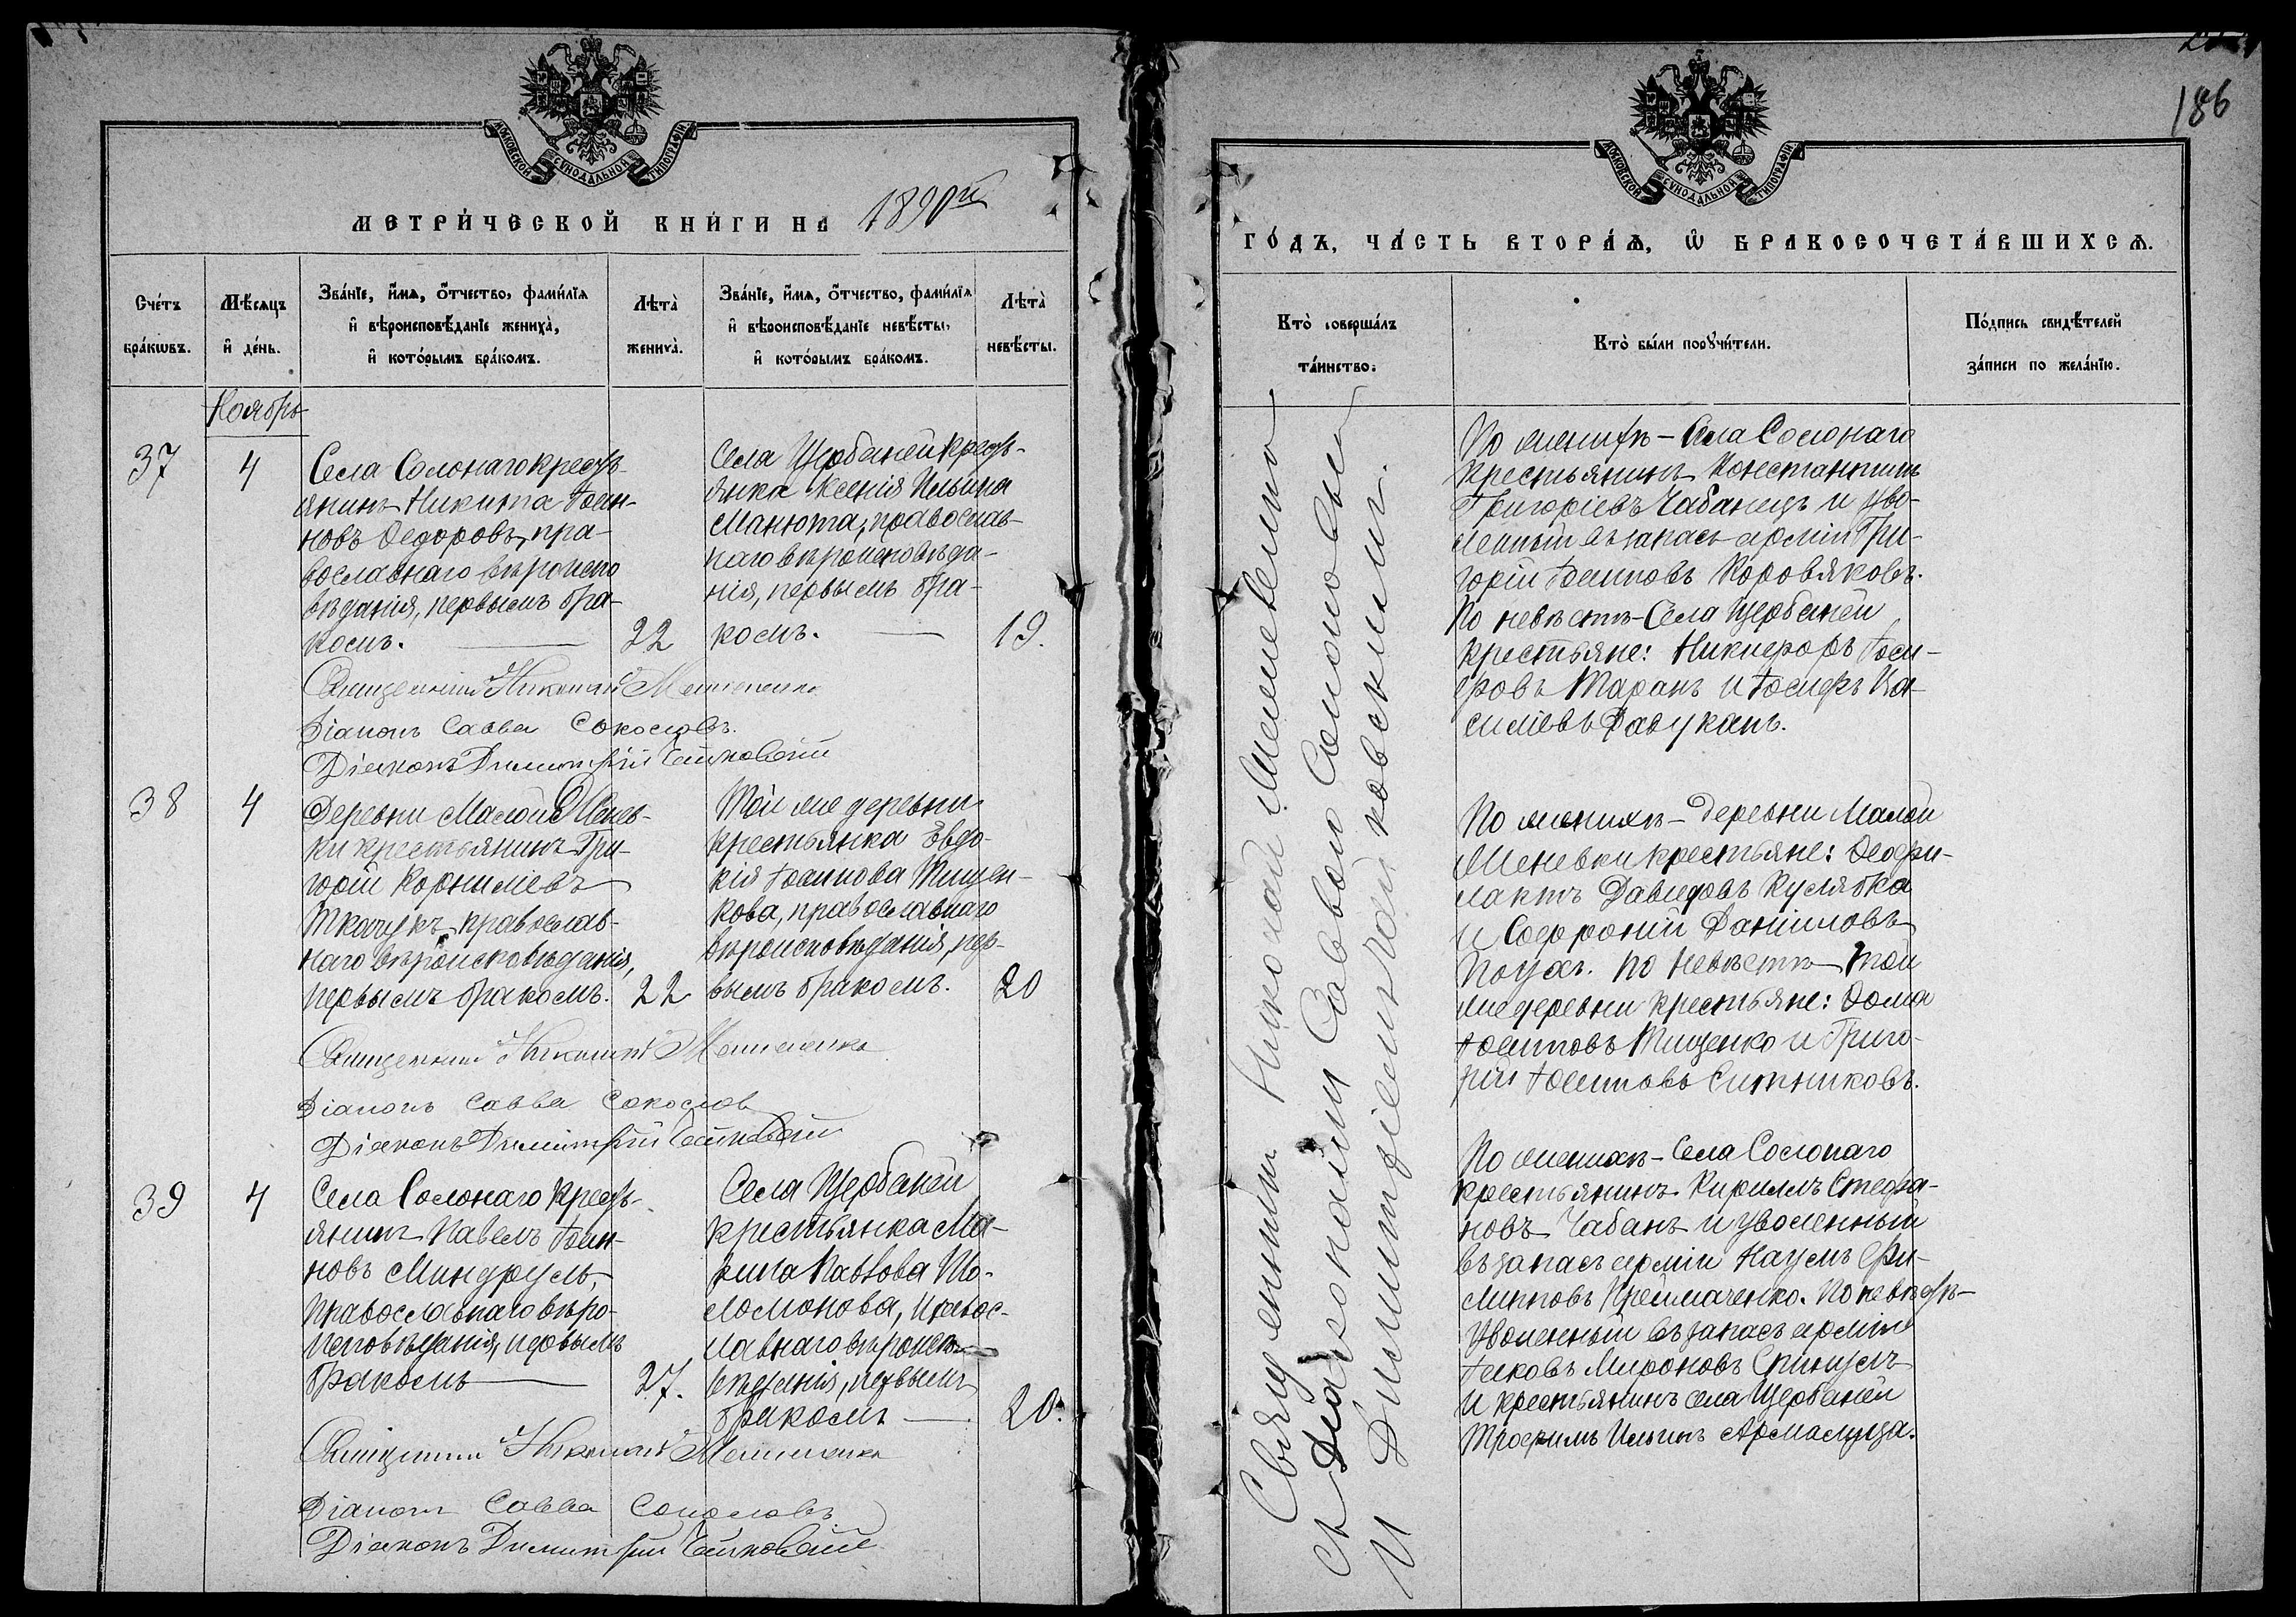 186
МОСКОВСКОЙ СѴНОДАЛЬНОЙ ТИПОГРАФІИ
МЕТРИ́ЧЕСКОЙ КНИ́ГИ НА 1890й
Сче́тъ бра́кѡвъ.
Мѣ́сѧцъ и҆ де́нь.
Зва́нїе, и҆́мѧ, ѻ҆́тчество, фами́лїѧ
и҆ вѣроисповѣ́данїе жениха̀,
и҆ кото́рымъ бра́комъ.
Лѣта̀ жениха̀.
Зва́нїе, и҆́мѧ, ѻ҆́тчество, фами́лїѧ
и҆ вѣроисповѣ́данїе невѣ́сты,
и҆ кото́рымъ бра́комъ.
Лѣта̀ невѣ́сты.
Ноябрь
37
4
Села Солонаго кресть-
янинъ Никита Іоан-
новъ Ѳедоровъ, пра-
вославнаго вѣроиспо
вѣданія, первымъ бра-
комъ.
22
Села Щербаней кресть-
янка Ксенія Ильина
Манюта, православ-
наго вѣроисповѣда-
нія, первымъ бра-
комъ.
19.
Священникъ Николай
Діаконъ Савва Соколовъ.
Діаконъ Димитрій
38
4
Деревни Малой Менев-
ки крестьянинъ Гри-
горій Корниліевъ
Ткачукъ, православ-
наго вѣроисповѣданія,
первымъ бракомъ.
22
Той же деревни
крестьянка Евдо-
кія Іоаннова Тищен-
кова, православнаго
вѣроисповѣданія, пер-
вымъ бракомъ.
20
Священникъ Николай
Діаконъ Савва Соколовъ
Діаконъ Димитрій
39
4
Села Солонаго кресть-
янинъ Павелъ Іоан-
новъ Миндруль,
православнаго вѣро-
исповѣданія, первымъ
бракомъ
27.
Села Щербаней
крестьянка Ма-
рина Павлова Шо-
ломонова, правос-
лавнаго вѣроиспо-
вѣданія, первымъ
бракомъ
20.
Священникъ Николай
Діаконъ Савва Соколовъ
Діаконъ Димитрій
МОСКОВСКОЙ СѴНОДАЛЬНОЙ ТИПОГРАФІИ
ГО́ДЪ, ЧА́СТЬ ВТОРА́Ѧ, Ѡ҆ БРАКОСОЧЕТА́ВШИХСѦ.
Кто̀ соверша́лъ
та́инство.
Кто̀ бы́ли порꙋчи́тели.
По́дпись свидѣ́телей
за́писи по жела́нїю.
Священникъ Николай
съ Діаконами Саввою Соколовымъ
и Димитріемъ
По женихѣ - Села Солонаго
крестьянинъ Константинъ
Григоріевъ Чабанецъ и уво-
ленный въ запасъ арміи Гри-
горій Іоанновъ Коровяковъ.
По невѣстѣ - Села Щербаней
крестьяне: Никифоръ Іоси-
фовъ Таранъ и Іосифъ Ва-
силіевъ
По женихѣ - деревни Малой
Меневки крестьяне: Ѳеофи-
лактъ Давидовъ Кулябка
и Софроній Даніиловъ
Поцахъ. По невѣстѣ - той
же деревни крестьяне: Ѳома
Іоанновъ Тищенко и Григо-
рій Іоанновъ Ситниковъ.
По женихѣ - Села Солонаго
крестьянинъ Кириллъ Стефа-
новъ Чабанъ и уволенный
въ запасъ арміи Наумъ Фи-
липповъ По невѣстѣ -
Уволенный въ запасъ арміи
Іаковъ Мироновъ
и крестьянинъ села Щербаней
Трофимъ Ильинъ